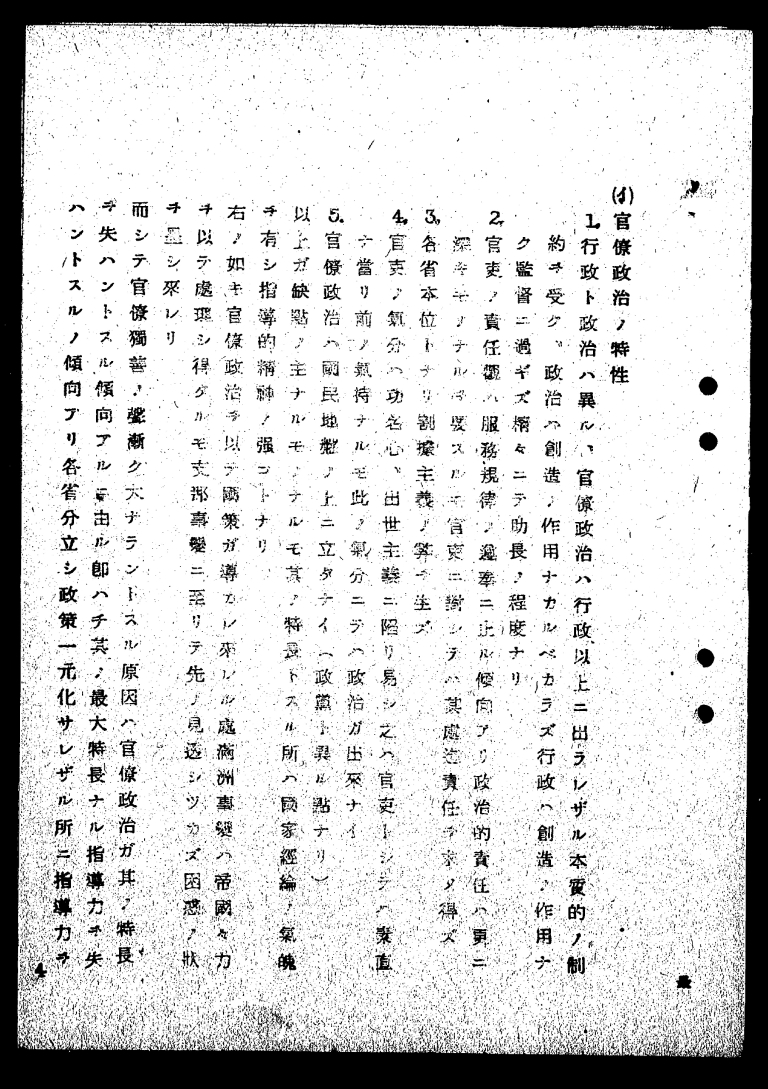 (イ)官僚政治ノ特性
1.行政ト政治ハ異ル、官僚政治ハ行政以上ニ出ラレザル本質的ノ制
約ヲ受ク、政治ハ創造ノ作用ナカルベカラズ行政ハ創造ノ作用ナ
ク監督ニ過ギズ精々ニテ助長ノ程度ナリ
2.官吏ノ責任觀ハ服務規律ノ遵奉ニ止ル傾向アリ政治的責任ハ更ニ
深キモノナルヲ要スルモ官吏ニ對シテハ其處迄責任ヲ求メ得ズ
3.各省本位トナリ割據主義ノ弊ヲ生ズ
4.官吏ノ氣分ハ功名心、出世主義ニ陷リ易シ之ハ官吏トシテハ素直
ナ當リ前ノ氣持ナルモ此ノ氣分ニテハ政治ガ出來ナイ
5.官僚政治ハ國民地盤ノ上ニ立タナイ(政黨ト異ル點ナリ)
以上ガ缺點ノ主ナルモノナルモ其ノ特長トスル所ハ國家經綸ノ氣魄
ヲ有シ指導的精神ノ强コトナリ
右ノ如キ官僚政治ヲ以テ國策ガ導カレ來レル處滿洲事變ハ帝國々力
ヲ以テ處理シ得タルモ支那事變ニ至リテ先ノ見透シツカズ困惑ノ狀
ヲ呈シ來レリ
而シテ官僚獨善ノ聲漸ク大ナラントスル原因ハ官僚政治ガ其ノ特長
ヲ失ハントスル傾向アルニ由ル卽ハチ其ノ最大特長ナル指導力ヲ失
ハントスルノ傾向アリ各省分立シ政策一元化サレザル所ニ指導力ヲ
4